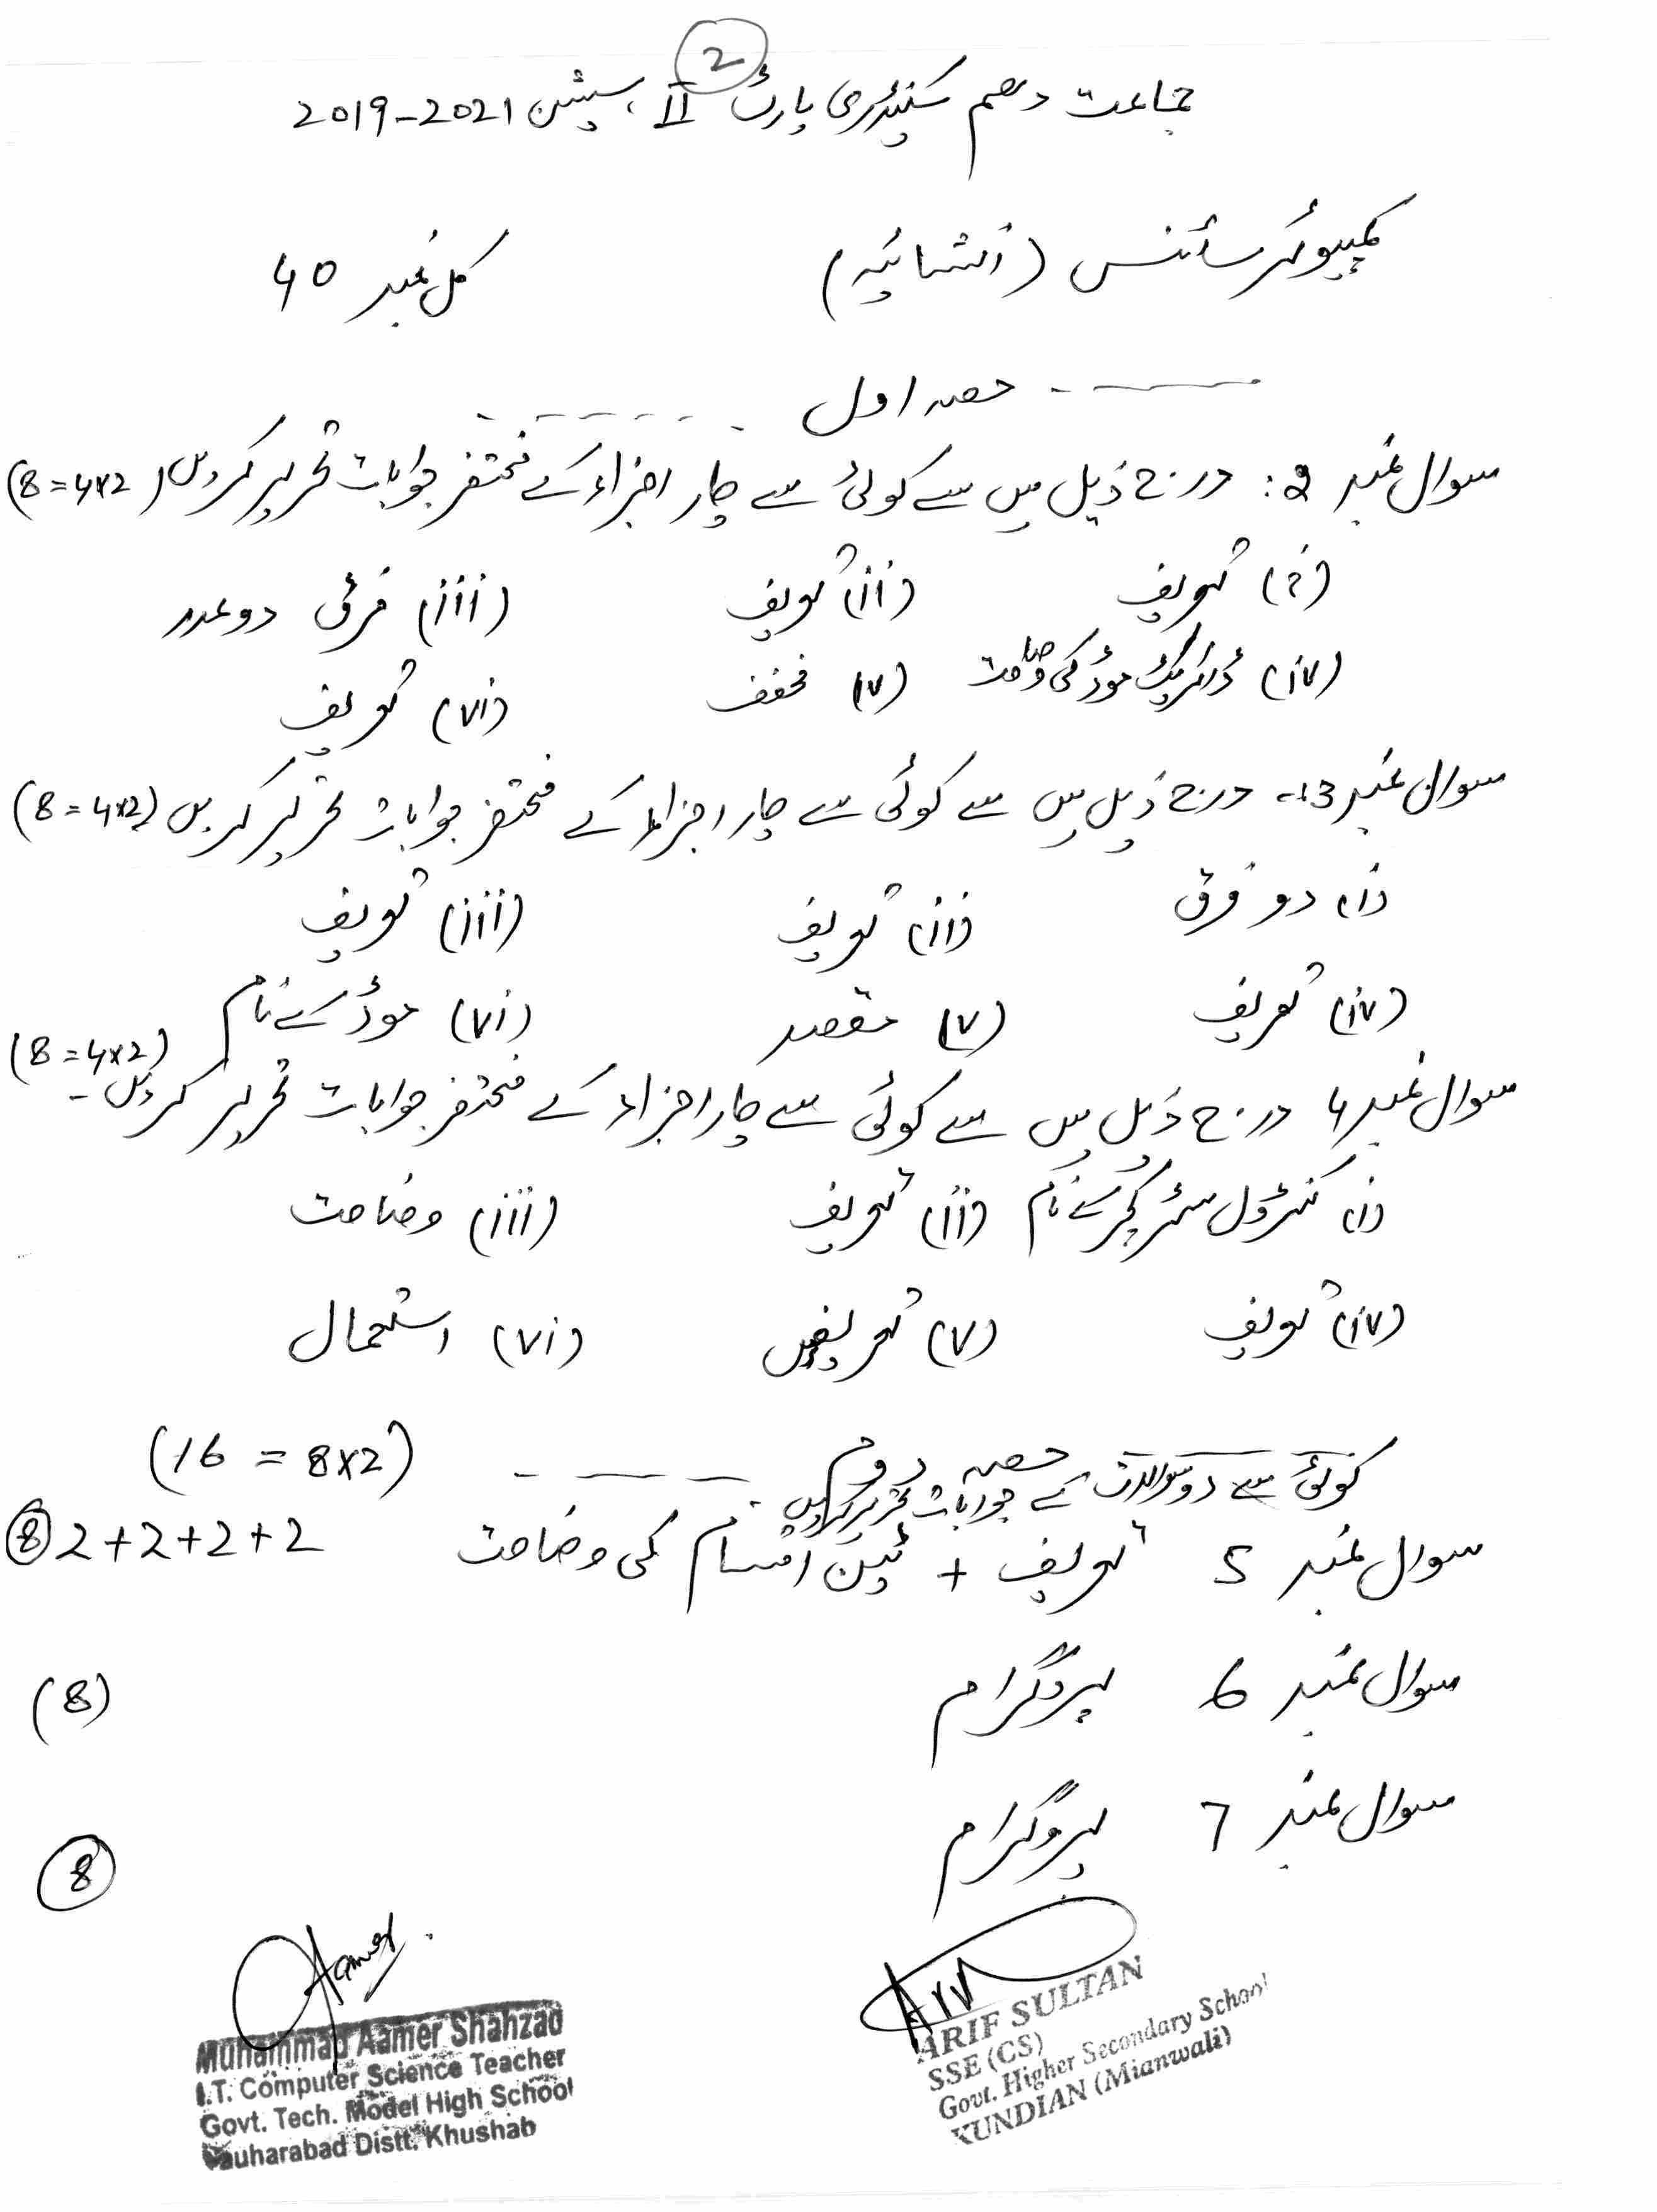 2
جماعت دہم سکینڈری پارٹ II، سیشن 2021-2019
کمپیوٹر سائنس (انشائیہ) کل نمبر 40
حصہ اول
سوال نمبر 2: درج ذیل میں سے کوئی سے چار اجزاء کے مختصر جوابات تحریر کریں (8=4x2)
(i) تعریف (ii) تعریف (iii) فرق دو عدد
(iv) ڈائریکٹ موڈ کی وضاحت (v) مخفف (vi) تعریف
سوال نمبر 3:- درج ذیل میں سے کوئی سے چار اجزاء کے مختصر جوابات تحریر کریں (8=4x2)
(i) دو فرق (ii) تعریف (iii) تعریف
(iv) تعریف (v) مقصد (vi) موڈ کے نام
سوال نمبر 4 درج ذیل میں سے کوئی سے چار اجزاء کے مختصر جوابات تحریر کریں۔ (8=4x2)
(i) کنٹرول سٹرکچر کے نام (ii) تعریف (iii) وضاحت
(iv) تعریف (v) تعریفیں (vi) استعمال
حصہ دوم (16 = 8x2)
کوئی سے دو سوالات کے جوابات تحریر کریں۔
سوال نمبر 5 تعریف + تین اقسام کی وضاحت 2+2+2+2 (8)
سوال نمبر 6 پروگرام (8)
سوال نمبر 7 پروگرام (8)
Aamer
Muhammad Aamer Shahzad
I.T. Computer Science Teacher
Govt. Tech. Model High School
Jauharabad Distt. Khushab
ARIF SULTAN
SSE (CS)
Govt. Higher Secondary School
KUNDIAN (Mianwali)